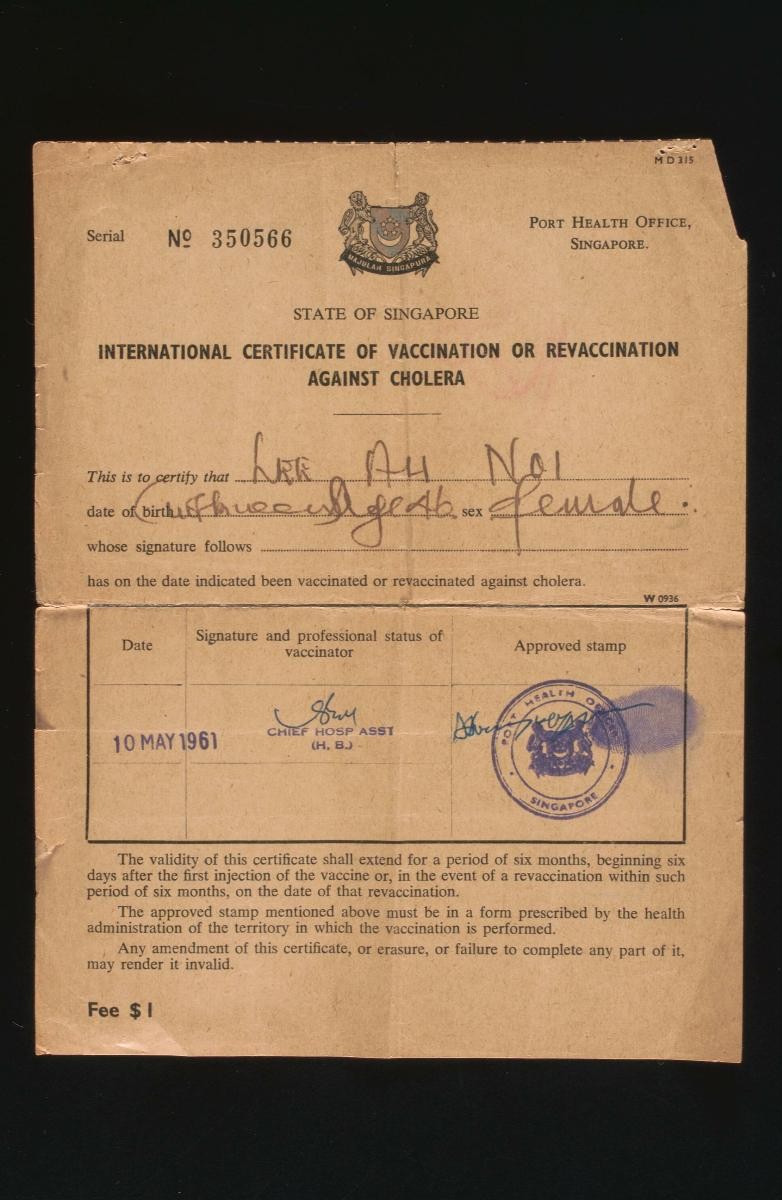 M D 315
Serial Nº 350566
MAJULAH SINGAPURA
PORT HEALTH OFFICE,
SINGAPORE.
STATE OF SINGAPORE
INTERNATIONAL CERTIFICATE OF VACCINATION OR REVACCINATION
AGAINST CHOLERA
This is to certify that LEE AH NOI
date of birth Age 46 sex female.
whose signature follows
has on the date indicated been vaccinated or revaccinated against cholera.
W 0936
Date
Signature and professional status of
vaccinator
Approved stamp
10 MAY 1961
CHIEF HOSP ASST
(H. B.)
PORT HEALTH OFFICE
SINGAPORE
The validity of this certificate shall extend for a period of six months, beginning six
days after the first injection of the vaccine or, in the event of a revaccination within such
period of six months, on the date of that revaccination.
The approved stamp mentioned above must be in a form prescribed by the health
administration of the territory in which the vaccination is performed.
Any amendment of this certificate, or erasure, or failure to complete any part of it,
may render it invalid.
Fee $1